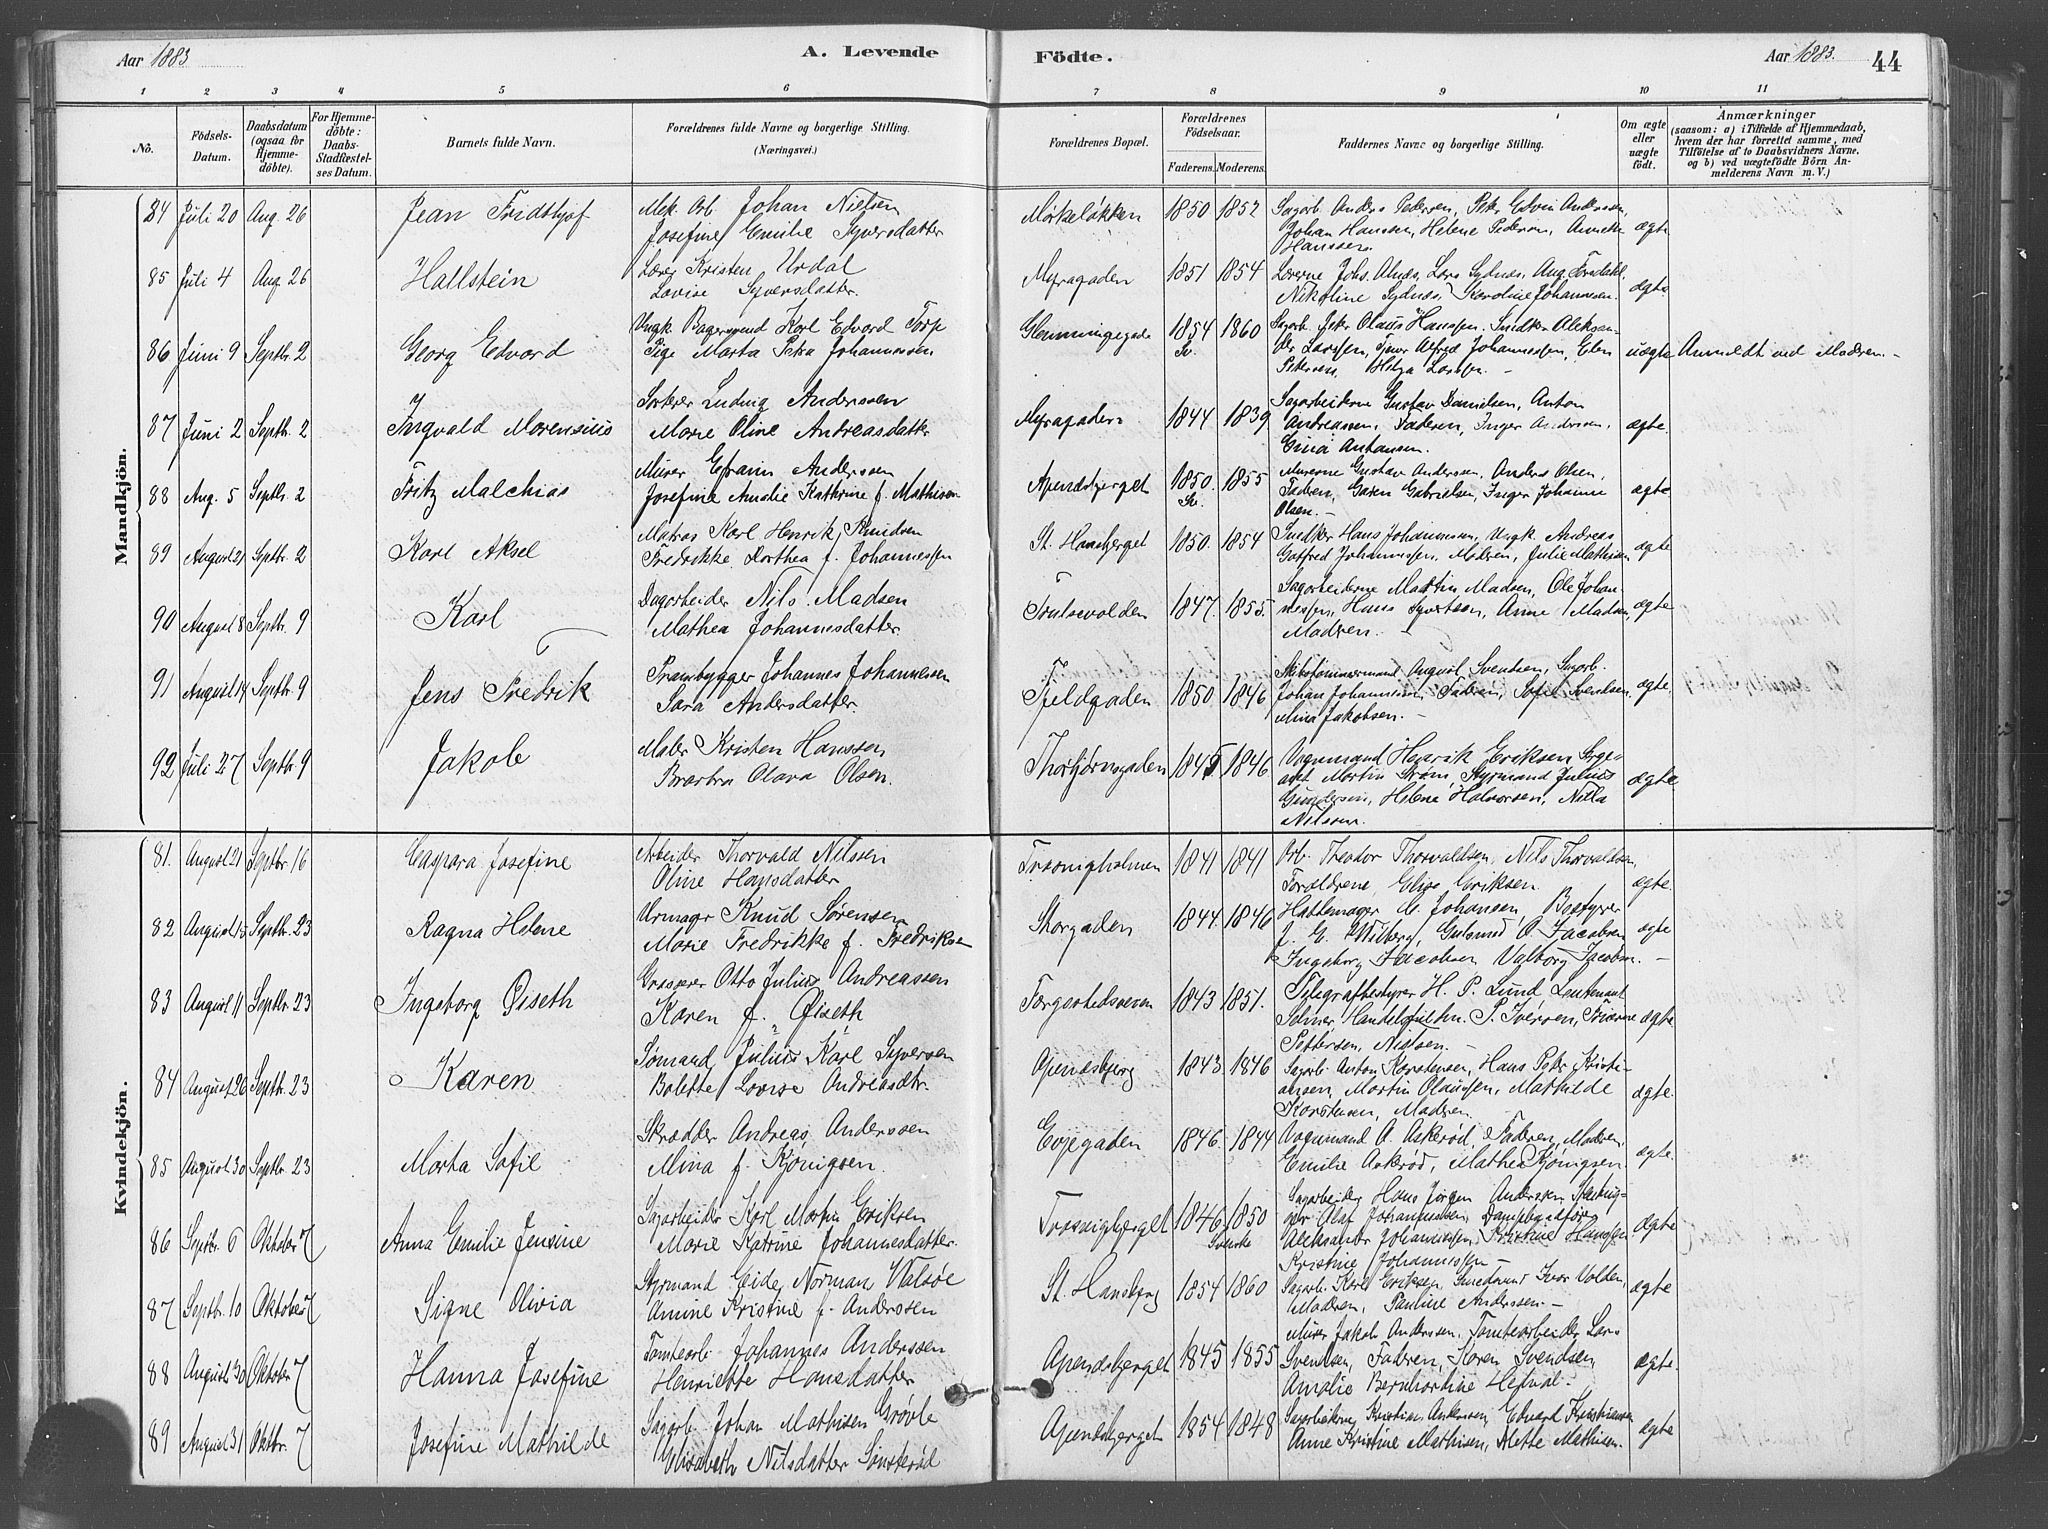 Aar 1883
A. Levende
Födte.
Aar 1883.
44
1 2 3 4 5 6 7 8 9 10 11
No.
Födsels-Datum.
Daabsdatum (ogsaa for Hjemme-döbte).
For Hjemme-döbte: Daabs-Stadfæstel-ses Datum.
Barnets fulde Navn.
Forældrenes fulde Navne og borgerlige Stilling. (Næringsvei.)
Forældrenes Bopæl.
Forældrenes Födselsaar.
Faderens. Moderens.
Faddernes Navne og borgerlige Stilling.
Om ægte eller uægte födt.
Anmærkninger
(saasom: a) i Tilfælde af Hjemmedaab, hvem der har forrettet samme, med Tilföielse af to Daabsvidners Navne. og b) ved uægtefödte Börn Anmelderens Navn m. V.)
Mandkjön.
84 Juli 20 Aug. 26 Jean Fridthjof Mek. Arb. Johan Nielsen
Josefine Emilie Syversdatter
Mørkeløkken 1850 1852 Sagarb. Anders Pedersen, Petr Edvin Anderssen,
Johan Hanssen, Helene Pedersen, Annette
Hanssen ægte
85 Juli 4 Aug. 26 Hallstein Lærer Kristen Urdal
Lovise Syversdatter.
Myragaden 1851 1854 Lærerne Johs. Alnæs, Lars Sydnæs, Aug.
Nikoline Sydnæs, Karoline Johannesen. ægte
86 Juni 9 Septbr. 2 Georg Edvard Ungk. Bagersvend Karl Edvard Torp
Pige Marta Petra Johannessen
Glemmingegade 1854 Sv. 1860 Sagarb. Petr Olaus Hanssen. Snedker Aleksan-
der Larssen, Alfred Johannessen, Elen
Petersen, Helga Larssen. - uægte Anmeldt ved Moderen. -
87 Juni 2 Septbr. 2 Ingvald Morensius Sorterer Ludvig Anderssen
Marie Oline Andreasdatter
Myragaden 1844 1839 Sagarbeiderne Gustav Danielsen, Anton
Andreassen, Faderen, Inger Andersen,
Gina Antonsen. ægte.
88 Aug. 5 Septbr. 2 Fritz Malchias Murer Efraim Anderssen
Josefine Amalie Kathrine f. Mathisen
Apenæsbjerget 1850. Sv. 1855 Murerne Gustav Anderssen, Anders Olsen,
Faderen, Garen Gabrielsen, Inger Johanne
Olsen. - ægte
89 August 21 Septbr. 2 Karl Aksel Matros Karl Henrik Knudsen
Fredrikke Dorthea f. Johannessen
St. Hansberget 1850. 1854 Snedker Hans Johannessen, Ungk. Andreas
Gotfred Johannessen, Moderen, Julie Mathisen ægte
90 August 8 Septbr. 9 Karl Dagarbeider Nils Madsen
Mathea Johannesdatter.
Trulsevolden 1847. 1855. Sagarbeiderne Martin Madsen, Ole Johan-
nessen, Hans Syvertsen, Anne Madsen,
Moderen. - ægte
91 August 14 Septbr. 9 Jens Fredrik Prambygger Johannes Johannessen
Sara Andersdatter.
Fjeldgaden 1850 1846 Skibstømmermand August Svendsen, Sagarb.
Johan Johannessen, Faderen, Sofie Svendsen
Mina Jakobsen. - ægte.
92 Juli 27 Septbr. 9 Jakob Maler Kristen Hanssen
Barbra Olava Olsen.
Thorbjørnsgaden 1845 1846 Vognmand Henrik Eriksen
Martin Strøm, Styrmand Julius
Gundersen, Helene Halvorsen, Nilla
Nilssen. ægte
Kvindekjön.
81. August 21 Septbr 16 Caspara Josefine Arbeider Thorvald Nilssen
Oline Hansdatter
Trosvigholmen 1841 1841 Arb. Theodor Thorvaldsen, Nils Thorvaldsen,
Forældrene, Elise Eriksen. ægte
82 August 15 Septbr. 23 Ragna Helene Urmagr Knud Sørensen
Marie Fredrikke f. Fredriksen
Storgaden 1844. 1846 Hattemager C. Johansen Bestyrer
J. E. Wilberg, Gulsmed O. Jacobsen
Ingeborg Jacobsen Valborg Jacobsen. - ægte
83 August 11 Septbr. 23 Ingeborg Øiseth Grosserer Otto Julius Andreassen
Karen f. Øiseth
Færgestedsveien 1843 1851. Telegrafbestyrer H. P. Lund Leutenant
P. Iversen,
Pettersen, Nielsen. - ægte
84 August 26 Septbr. 23 Karen Sømand Julius Karl Syversen
Bolette Lovise Andreasdtr.
Apenæsbjerg 1843 1846 Sagarb. Anton Karstensen, Hans Petr Kristi-
ansen, Martin Olaussen, Mathilde
Karstensen, Moderen. ægte.
85 August 30 Septbr. 23 Marta Sofie Skrædder Andreas Anderssen
Mina f. Kjønigsen.
Evjegaden 1846. 1844 Vognmand A. Askerød, Faderen, Moderen,
Emilie Askerød, Mathea Kjønigsen ægte.
86 Septbr. 6 Oktober 7 Anna Emilie Jensine Sagarbeider Karl Martin Eriksen
Marie Katrine Johannesdatter.
Trosvigberget 1846 1850 Svenske Sagarbeider Hans Jørgen Anderssen
Olaf Johannessen,
Aleksander Johannessen, Kristine Hanssen
Kristine Johannessen - ægte
87 Septbr. 10 Oktober 7 Signe Olivia Styrmand Eide Norman Walsøe
Amine Kristine f. Anderssen
St. Hansbjerg 1854 1860 Sagarb. Karl Eriksen, Smedsvend Ivar Volden,
Moderen, Pauline Anderssen. - ægte
88 August 30 Oktober 7 Hanna Josefine Tomtearb. Johannes Anderssen
Henriette Hansdatter
Apenæsberget 1845 1855 Murer Jakob Anderssen, Tomtearbeider Lars
Svendsen, Faderen, Karen Svendsen,
Amalie Bernhartine ægte
89 August 31 Oktbr. 7 Josefine Mathilde Sagarb. Johan Mathisen Grøvle
Elisabeth Nilsdatter
Apenæsberget 1854 1848 Sagarbeiderne Kristian Anderssen, Edvard Kristiansen
Anne Kristine Mathisen, Mette Mathisen. ægte